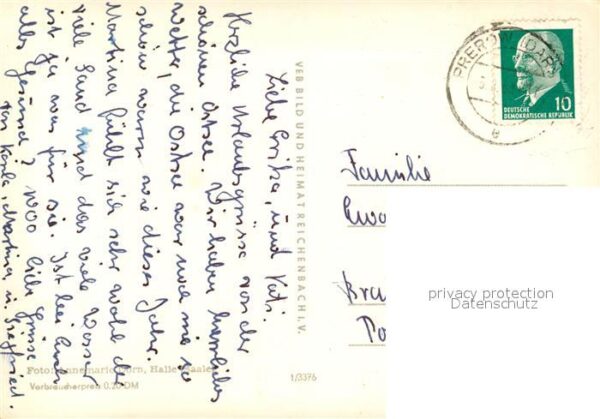 Liebe Erika, und Kati.
Herzliche Urlaubsgrüsse von der
schönen Ostsee. Wir haben herrliches
Wetter, die Ostsee war noch nie so
schön warm wie dieses Jahr.
Martina fühlt sich sehr wohl die
viele Sand und das viele Wasser
ist ja was für sie. Ist bei Euch
alles Gesund? 1000 liebe Grüsse
Karla, Martina u. Siegfried.
VEB BILD UND HEIMAT REICHENBACH I. V.
Foto: Annemarie Horn, Halle Saale
Verbraucherpreis 0,20 DM
1/3376
PREROW (DAR
e
10
DEUTSCHE
DEMOKRATISCHE REPUBLIK
Familie
Ewa
Bra
Po
privacy protection
Datenschutz